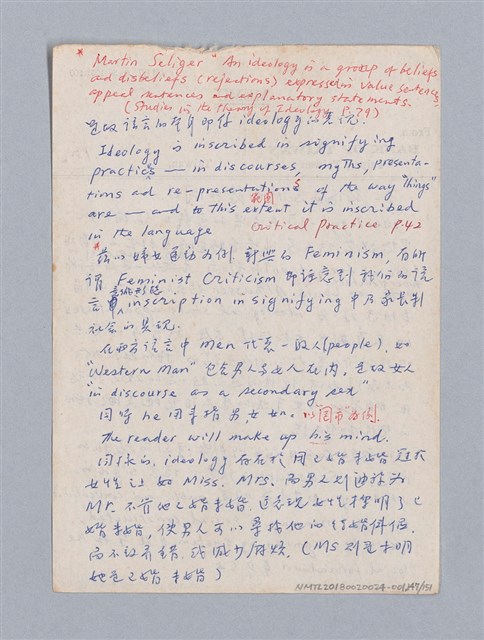 * Martin Seliger "An ideology is a group of beliefs
and disbeliefs (rejections) expressed in value sentences,
appeal sentences and explanatory statements.
(Studies in the theory of Ideology P.79)
是故語言的本身即係 ideology 的表現.
Ideology is inscribed in signifying
practices — in discourses, myths, presenta-
tions ad re-presentations of the way "things"
are — and to this extent it is inscribed
in the language critical practice P.42
* 茲以婦女運動為例, 新興的 Feminism, 有所
謂 Feminist Criticism 即注意到 我們的語
言 inscription in signifying 中乃家長制
社會的具現.
在西方語言中 men 代表一般人(people), 如
"Western Man" 包含男人與女人在內, 是故女人
"in discourse as a secondary sex"
同時 he 用來指男, 女 如. 以"圖市"為例.
The reader will make up his mind.
同樣的, ideology 存在於 用已婚未婚 冠於
女性 上 如 Miss. Mrs. 而男人則通稱為
Mr. 不管他已婚未婚. 這表現女性標明了已
婚未婚, 使男人可以尋找他的結婚伴侶,
而不致弄錯, 或減少麻煩. (MS 則是不明
她是已婚 未婚)
NMTL20180020024-001,147/151